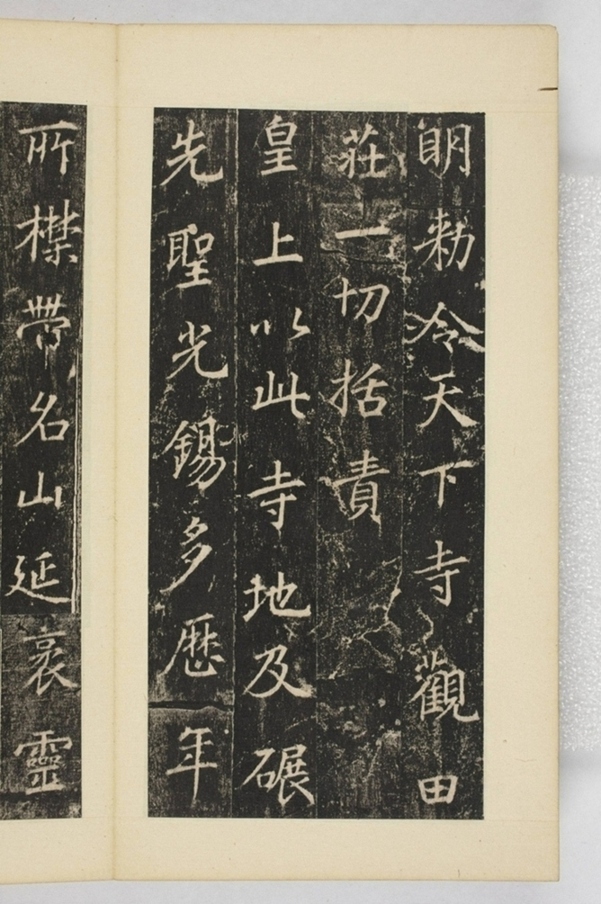 明勑令天下寺觀田
莊一切括責
皇上以此寺地及碾
先聖光錫多歷年
所襟帶名山延袤靈